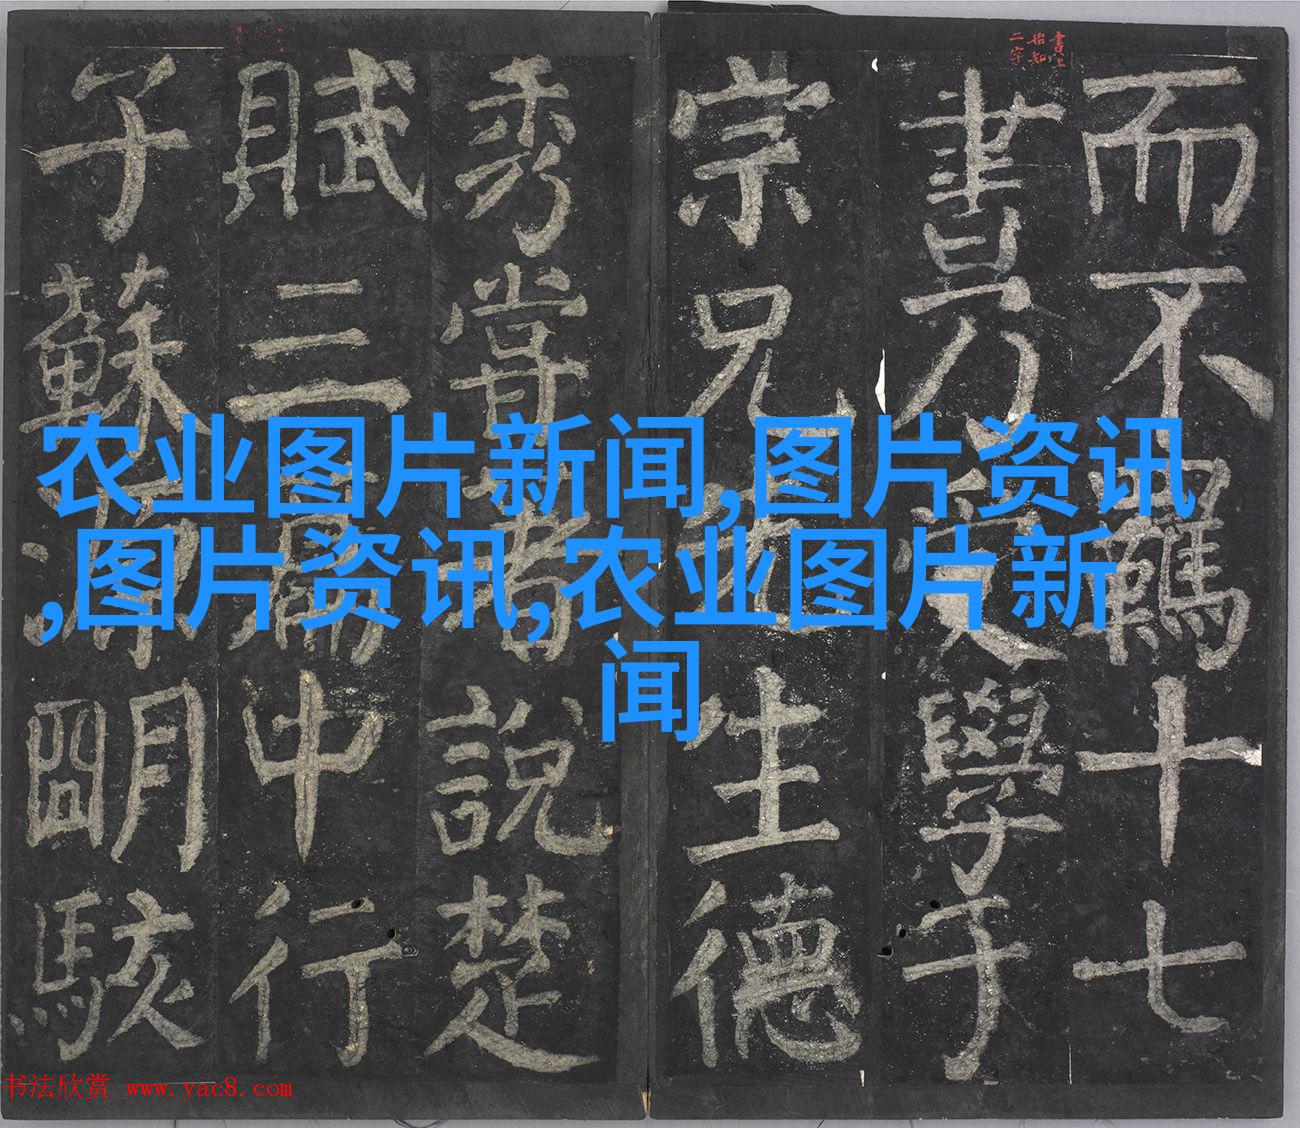 而不羈十七
書乃學于
宗兄先生德
秀嘗者說楚
賦三篇中行
子蘇明駭
書上
始知
二字
农业图片新闻,图片资讯
,图片资讯,农业图片新
闻
书法欣赏 www.yac8.com